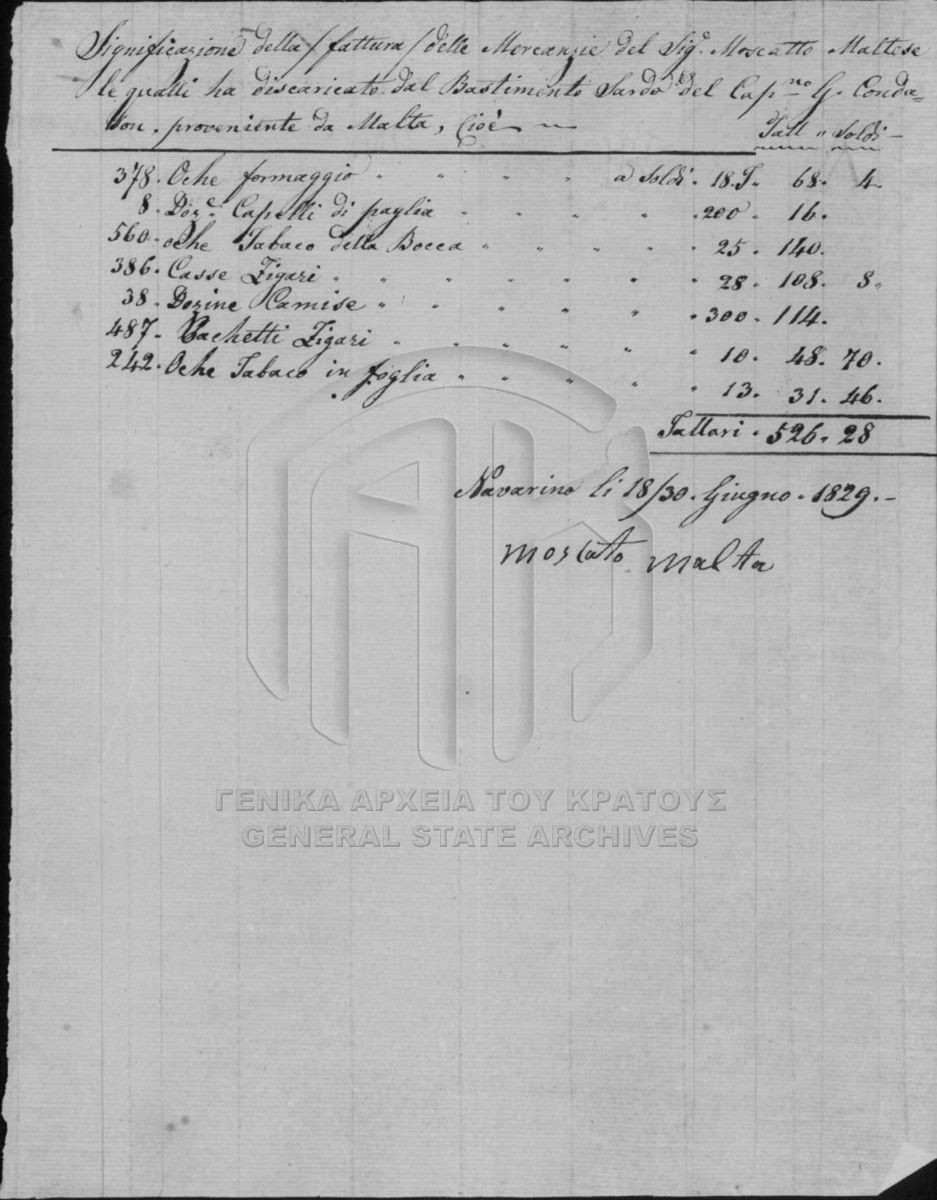 Significazione della /fattura/ delle Mercanzie del Sigr. Moscatto Maltese
le qualli ha discaricato dal Bastimento Sardo del Capno G. Conda=
son, proveniente da Malta, Cioè
Tall " Soldi -
378. Oche formaggio " " " " a Soldi " 18. T. 68. 4.
8. Doze. Capelli di paglia " " " " " 200 " 16.
560. oche Tabaco della Bocca " " " " " 25 " 140.
386. Casse Zigari " " " " " " 28 " 108. 8"
38. Dozine Camise " " " " " " 300 " 114.
487. Pachetti Zigari " " " " " " 10 " 48. 70.
242. Oche Tabaco in foglia " " " " " 13. 31. 46.
Tallari " 526 " 28
Navarino li 18/30. Giugno. 1829. -
Moscato Malta
ΓΕΝΙΚΑ ΑΡΧΕΙΑ ΤΟΥ ΚΡΑΤΟΥΣ
GENERAL STATE ARCHIVES